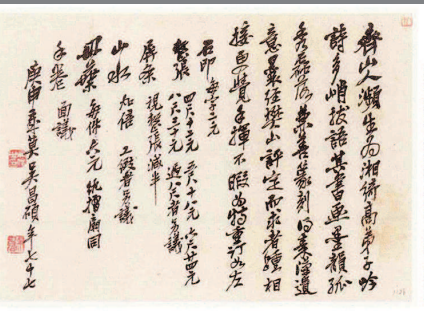 齊山人瀕生為湘綺高弟子吟
詩多峭拔語其書畫墨韻孤
秀磊落兼善篆刻得秦漢遺
意曩經樊山評定而求者踵相
接更覺手揮不暇為特重訂如左
石印每字二元
整張 四尺十二元 五尺十八元 六尺廿四元
八尺三十元 過八尺者另議
屏條 視整張減半
山水 加倍 工緻者另議
冊葉 每件六元 紈摺扇同
手卷 面議
庚申歲莫吳昌碩年七十七